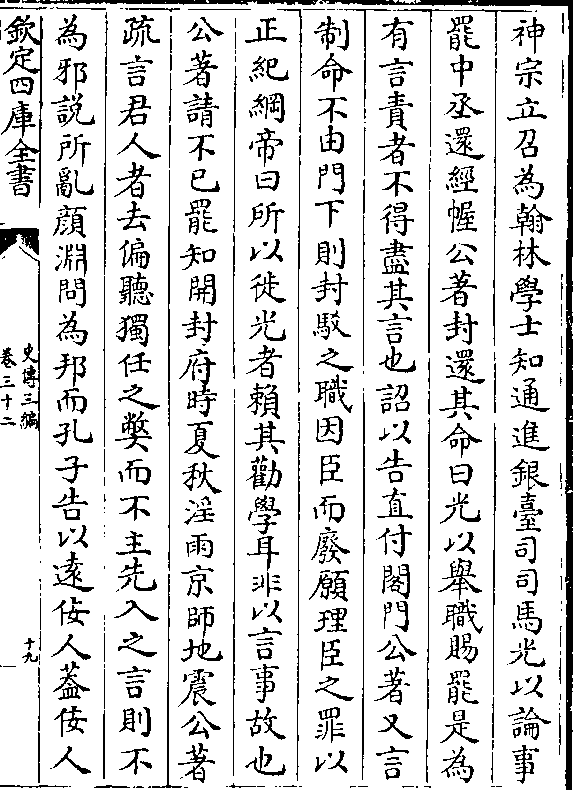 神宗立召為翰林學士知通進銀臺司司馬光以論事
罷中丞還經幄公著封還其命曰光以舉職賜罷是為
有言責者不得盡其言也詔以告直付閤門公著又言
制命不由門下則封駁之職因臣而廢願理臣之罪以
正紀綱帝曰所以徙光者賴其勸學耳非以言事故也
公著請不已罷知開封府時夏秋淫雨京師地震公著
疏言君人者去偏聽獨任之弊而不主先入之言則不
為邪說所亂顔淵問為邦而孔子告以遠佞人蓋佞人
欽定四庫全書
史傳三編
卷三十二
十九